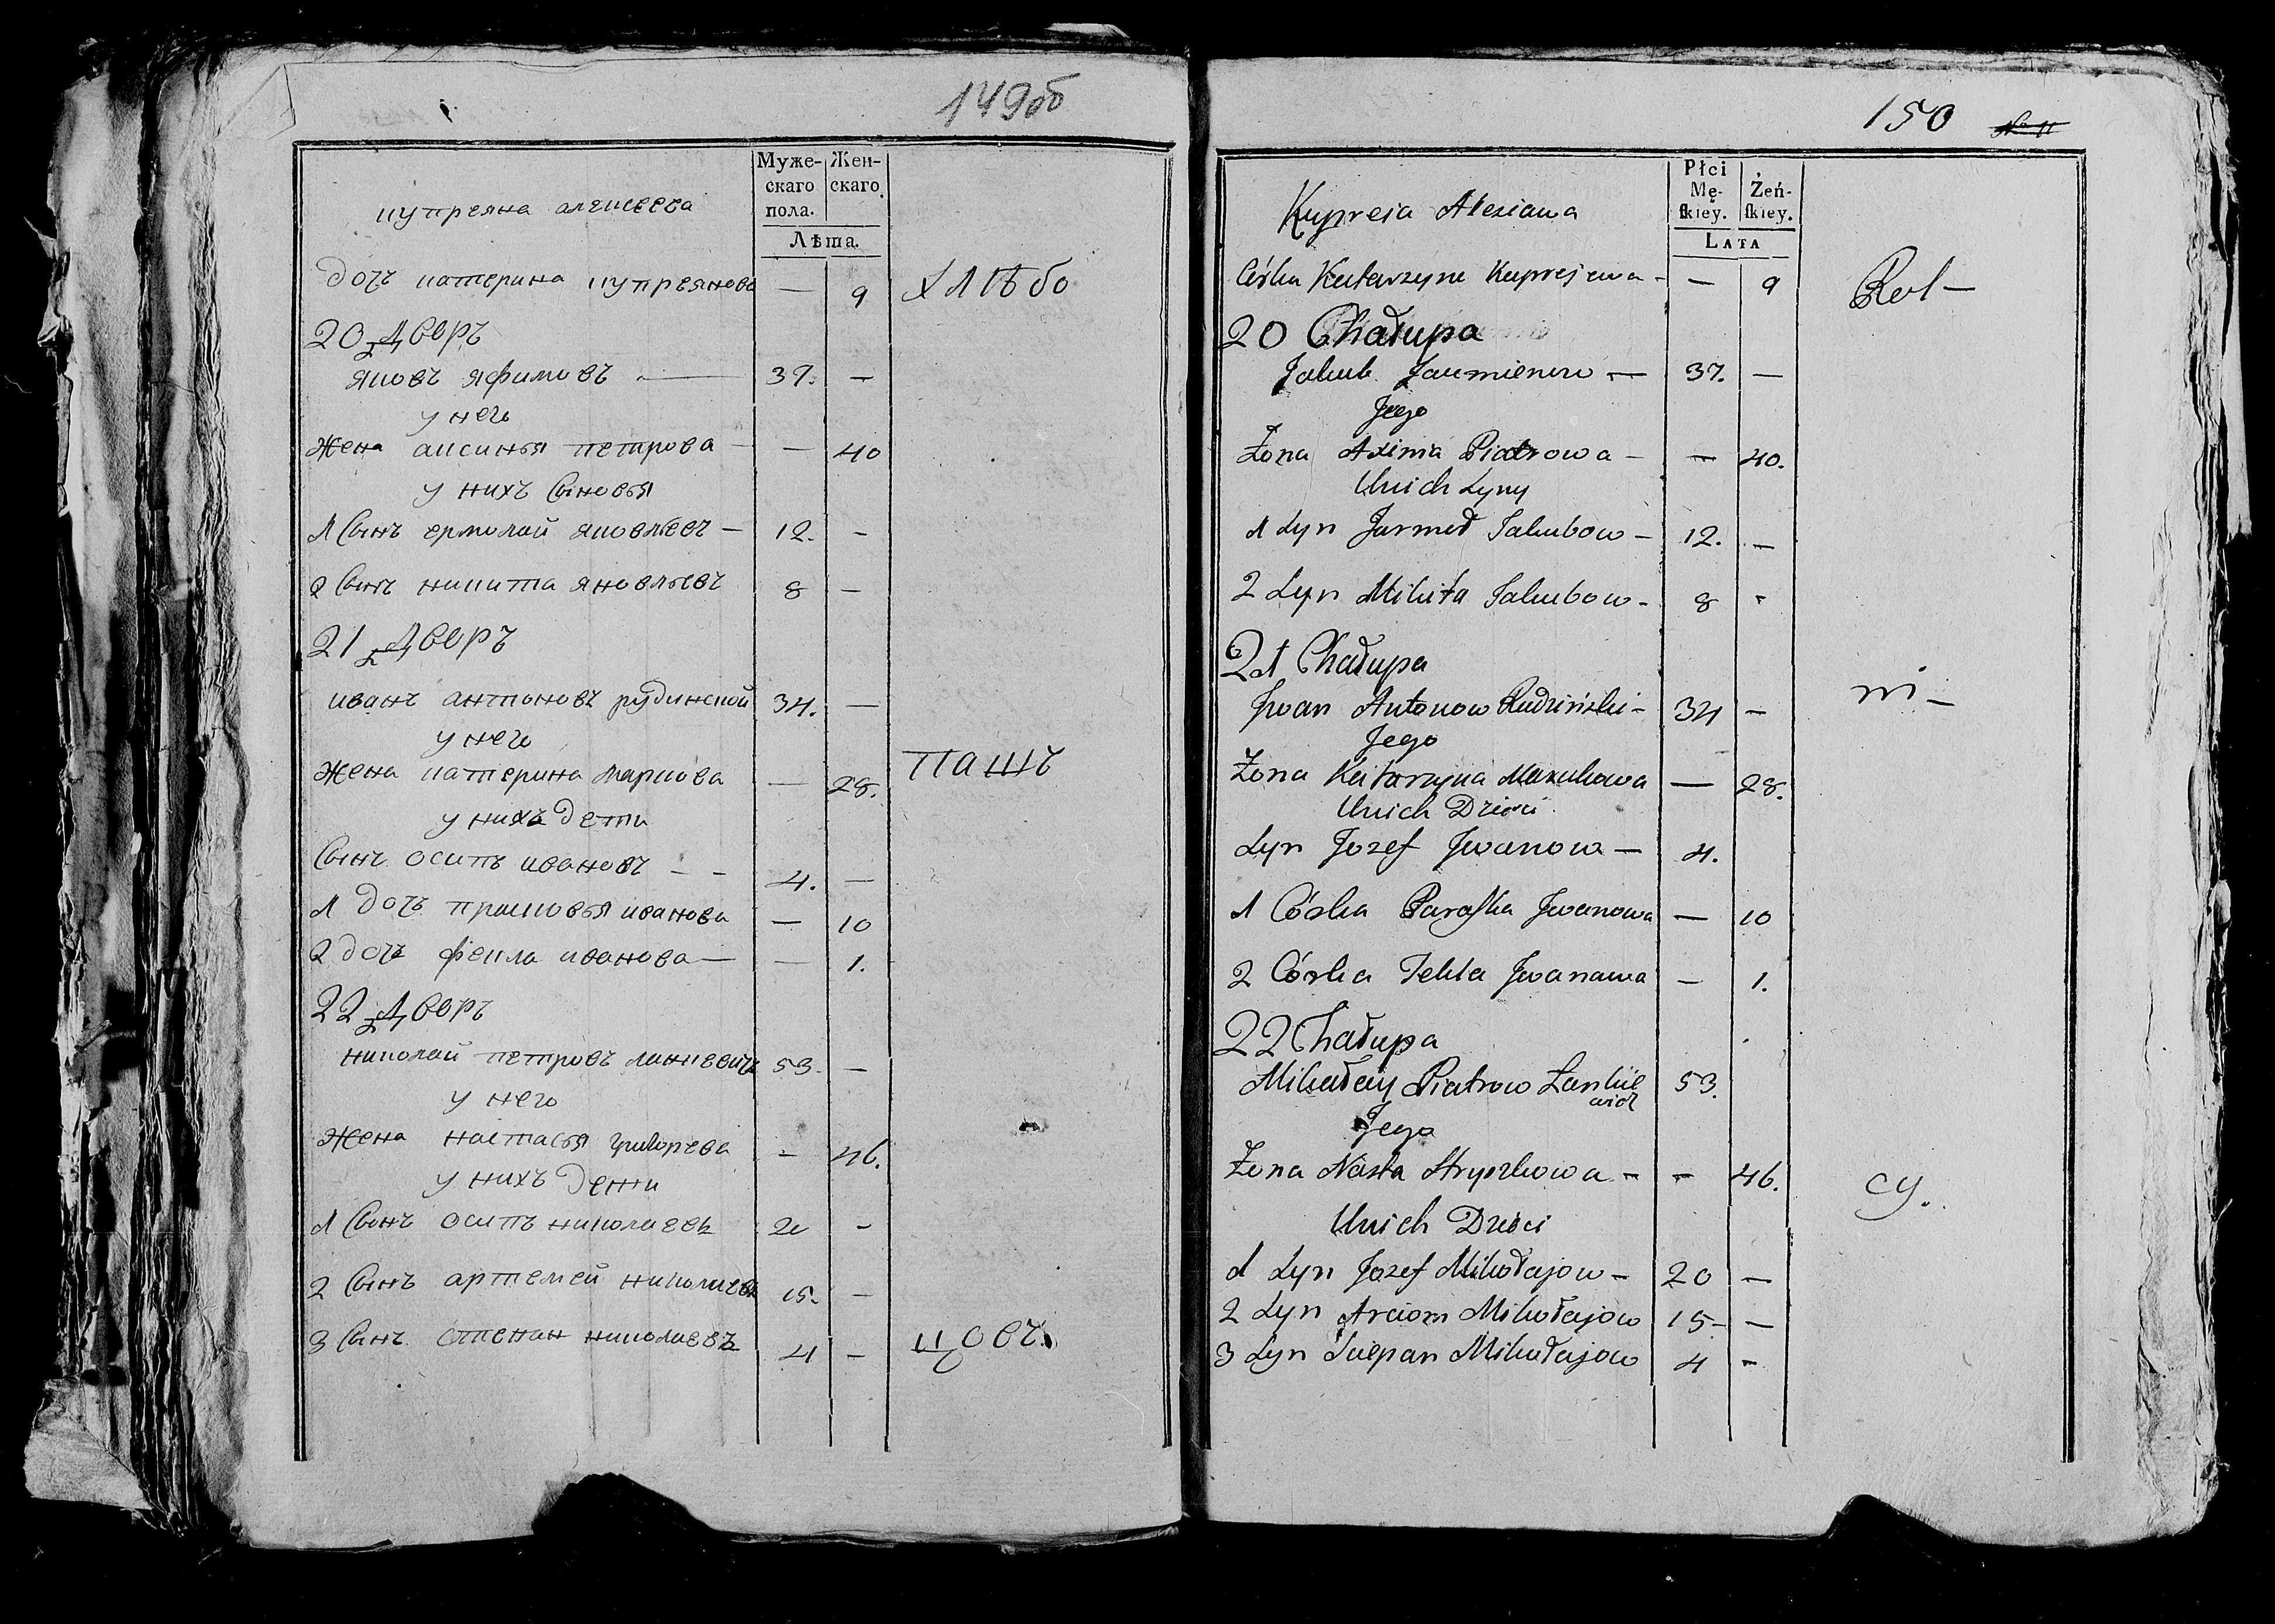 149об
Муже- Жен-
скаго скаго
пола.
Лѣта.
купреяна алексеева
дочь катерина купреянова — 9 хлѣбо
20 Дворъ
яковъ яфимовъ — 37. —
у него
жена аксинья петрова — — 40
у нихъ сыновья
1 сынъ ермолай яковлевъ — 12. —
2 сынъ никита яковлевъ 8 —
21 Дворъ
иванъ антоновъ рудинской 34. —
у него
жена катерина маркова — 28. пашъ
у нихъ дети
сынъ осипъ ивановъ - - 4. —
1 дочь прасковья иванова — 10
2 дочь фекла иванова — — 1.
22 Дворъ
николай петровъ 53. —
у него
жена настасья григорьева - 46.
у нихъ дети
1 сынъ осипъ николаевъ 20 -
2 сынъ артемей николаевъ 15. —
3 сынъ степан николаевъ 4 — цовъ
150 № 11
Płci
Mę- Żeń-
ſkiey. ſkiey.
LATA
Kupreia Alexiawa
Córka Katarzyna Kuprejewa - — 9 Rol —
20 Chałupa
Jakub — 37. —
Jego
Żona Axinia Piatrowa — — 40.
Unich Syny
1 Syn Jarmoł Jakubow — 12. —
2 Syn Mikita Jakubow - 8 -
21 Chałupa
Iwan Antonow Rudziński - 34 — ni —
Jego
Żona Katarzyna Markowa — 28.
Unich Dzieci
Syn Jozef Iwanow — 4.
1 Córka Paraſka Iwanowa — 10
2 Córka Tekla Iwanawa — 1.
22 Chałupa
Mikałay Piatrow Lankie 53.
wicz
Jego
Żona Nasta Hryszkowa - - 46. cy.
Unich Dzieci
1 Syn Jozef Mikołajow - 20 —
2 Syn Arciom Mikołajow 15- —
3 Syn Sciepan Mikołajow 4 -